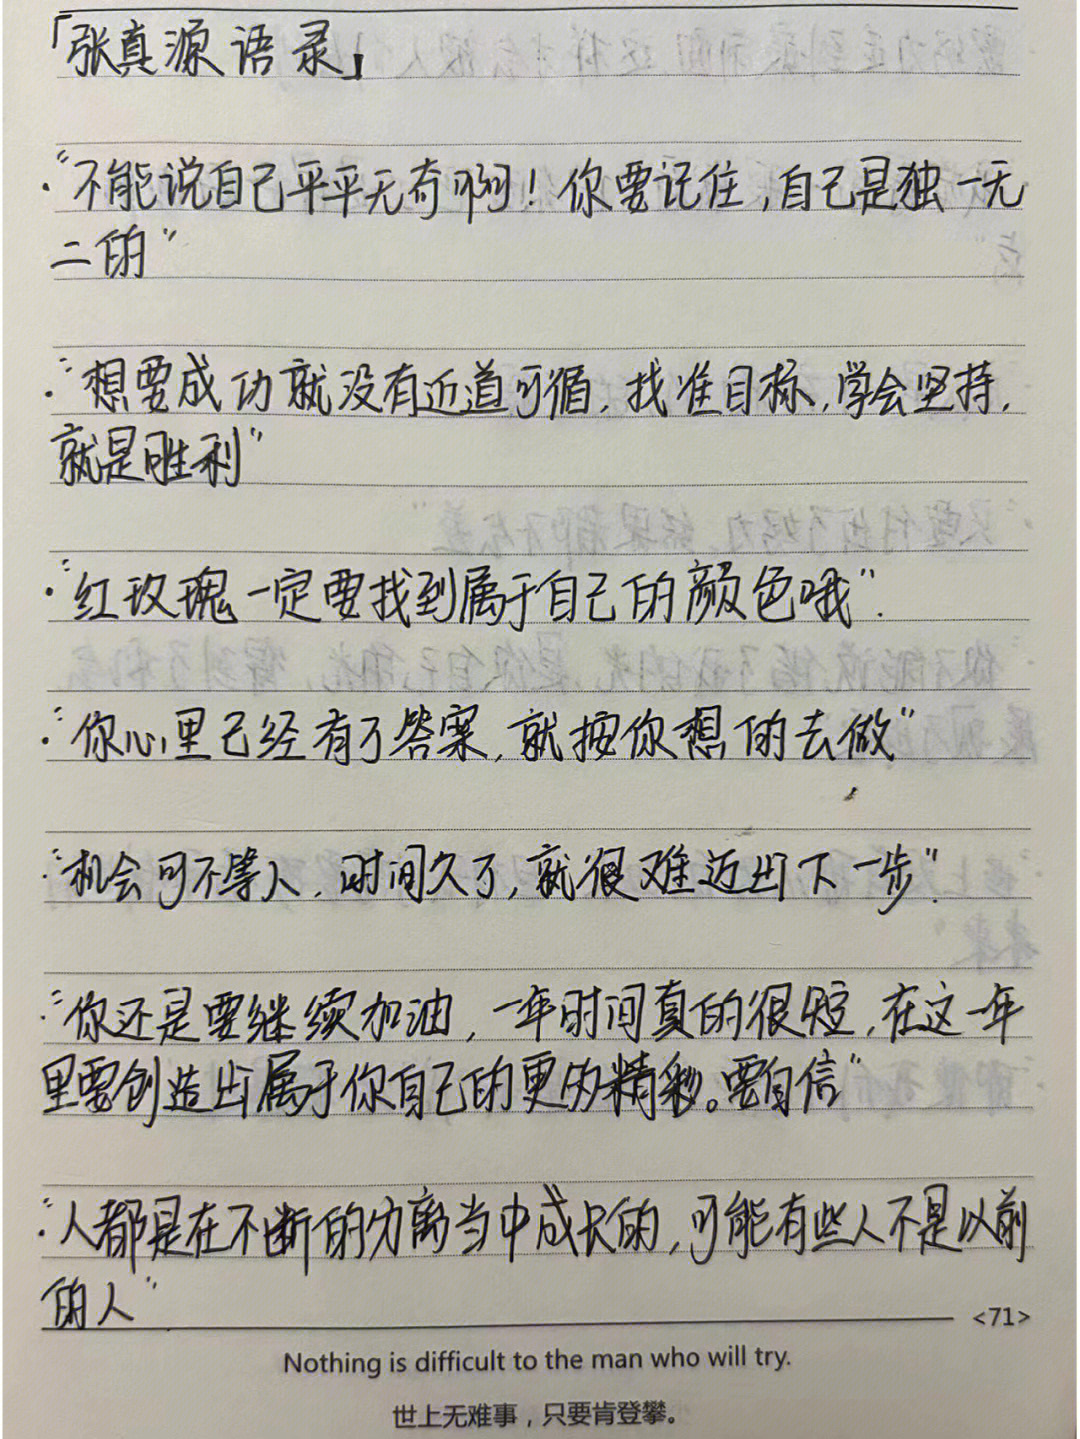 「张真源语录」
·“不能说自己平平无奇啊！你要记住，自己是独一无
二的”
·“想要成功就没有近道可循，找准目标，学会坚持，
就是胜利”
·“红玫瑰一定要找到属于自己的颜色哦”.
·“你心里已经有了答案，就按你想的去做”
·“机会可不等人，时间久了，就很难迈出下一步”.
·“你还是要继续加油，一年时间真的很短，在这一年
里要创造出属于你自己的更多精彩。要自信”
·“人都是在不断的分离当中成长的，可能有些人不是以前
的人”
<71>
Nothing is difficult to the man who will try.
世上无难事，只要肯登攀。